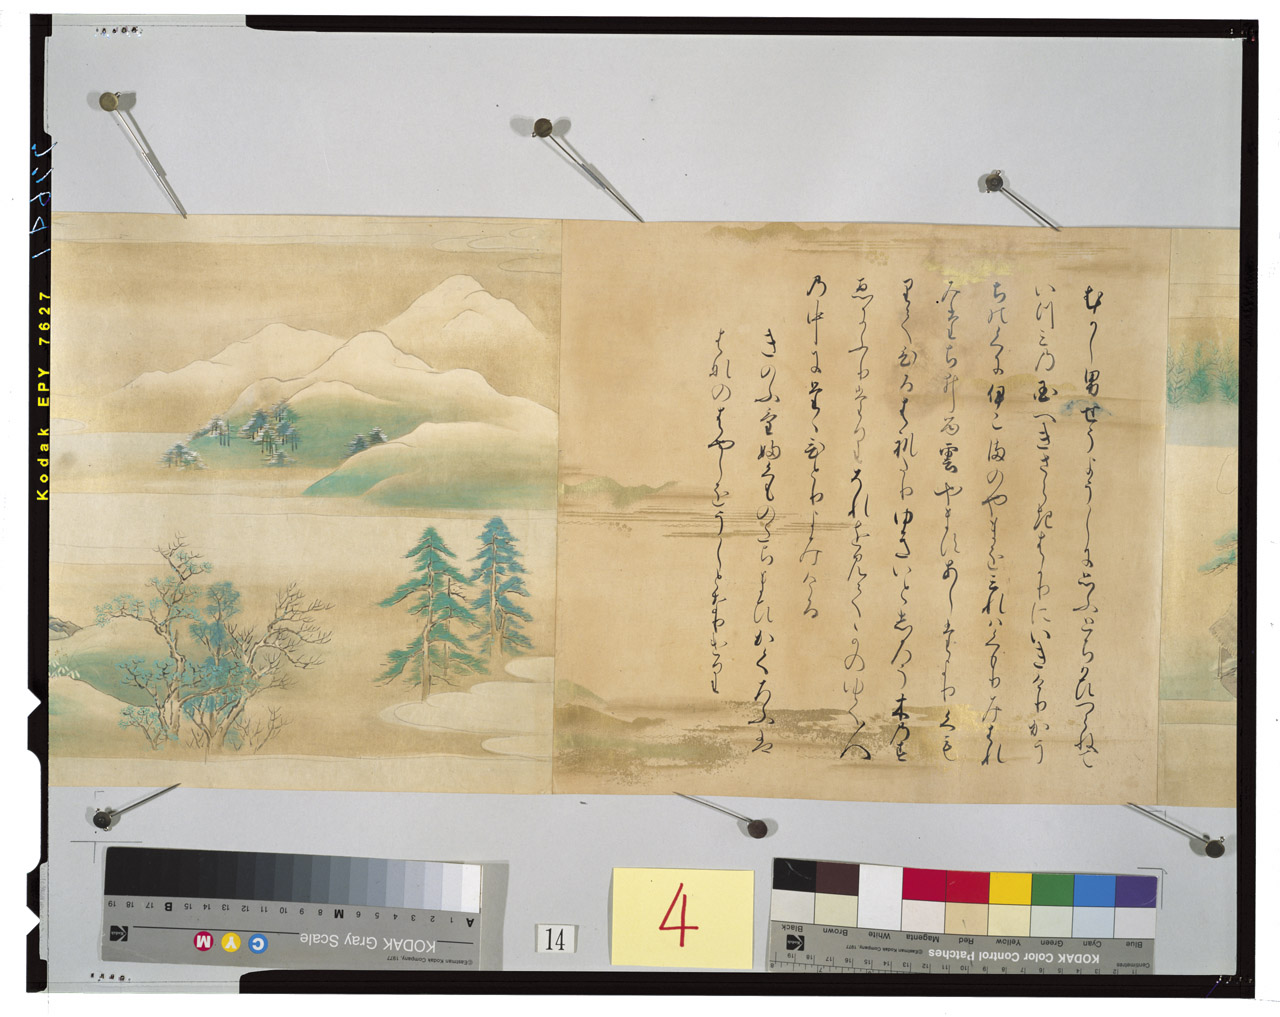 むかし男せうようしに思ふとちかいつらねて
いつみの国へきさらきはかりにいきけりかう
ちのくに伊こまのやまをみれはくもりみはれ
みたちゐる雲やますあしたよりくも
りてひるはれたりゆきいとしろう木のす
ゑにふりたりそれを見てかのゆく人
の中にたゝひとりよみける
きのふけふくものたちまひかくろふは
はなのはやしをうしとなりけり
Kodak EPY 7627
KODAK Gray Scale
C Y M
©Eastman Kodak Company, 1977
A 1 2 3 4 5 6 M 8 9 10 11 12 13 14 15 B 17 18 19
14
4
Blue Cyan Green Yellow Red Magenta White Brown Black
KODAK Color Control Patches
©Eastman Kodak Company, 1977
Centimetres